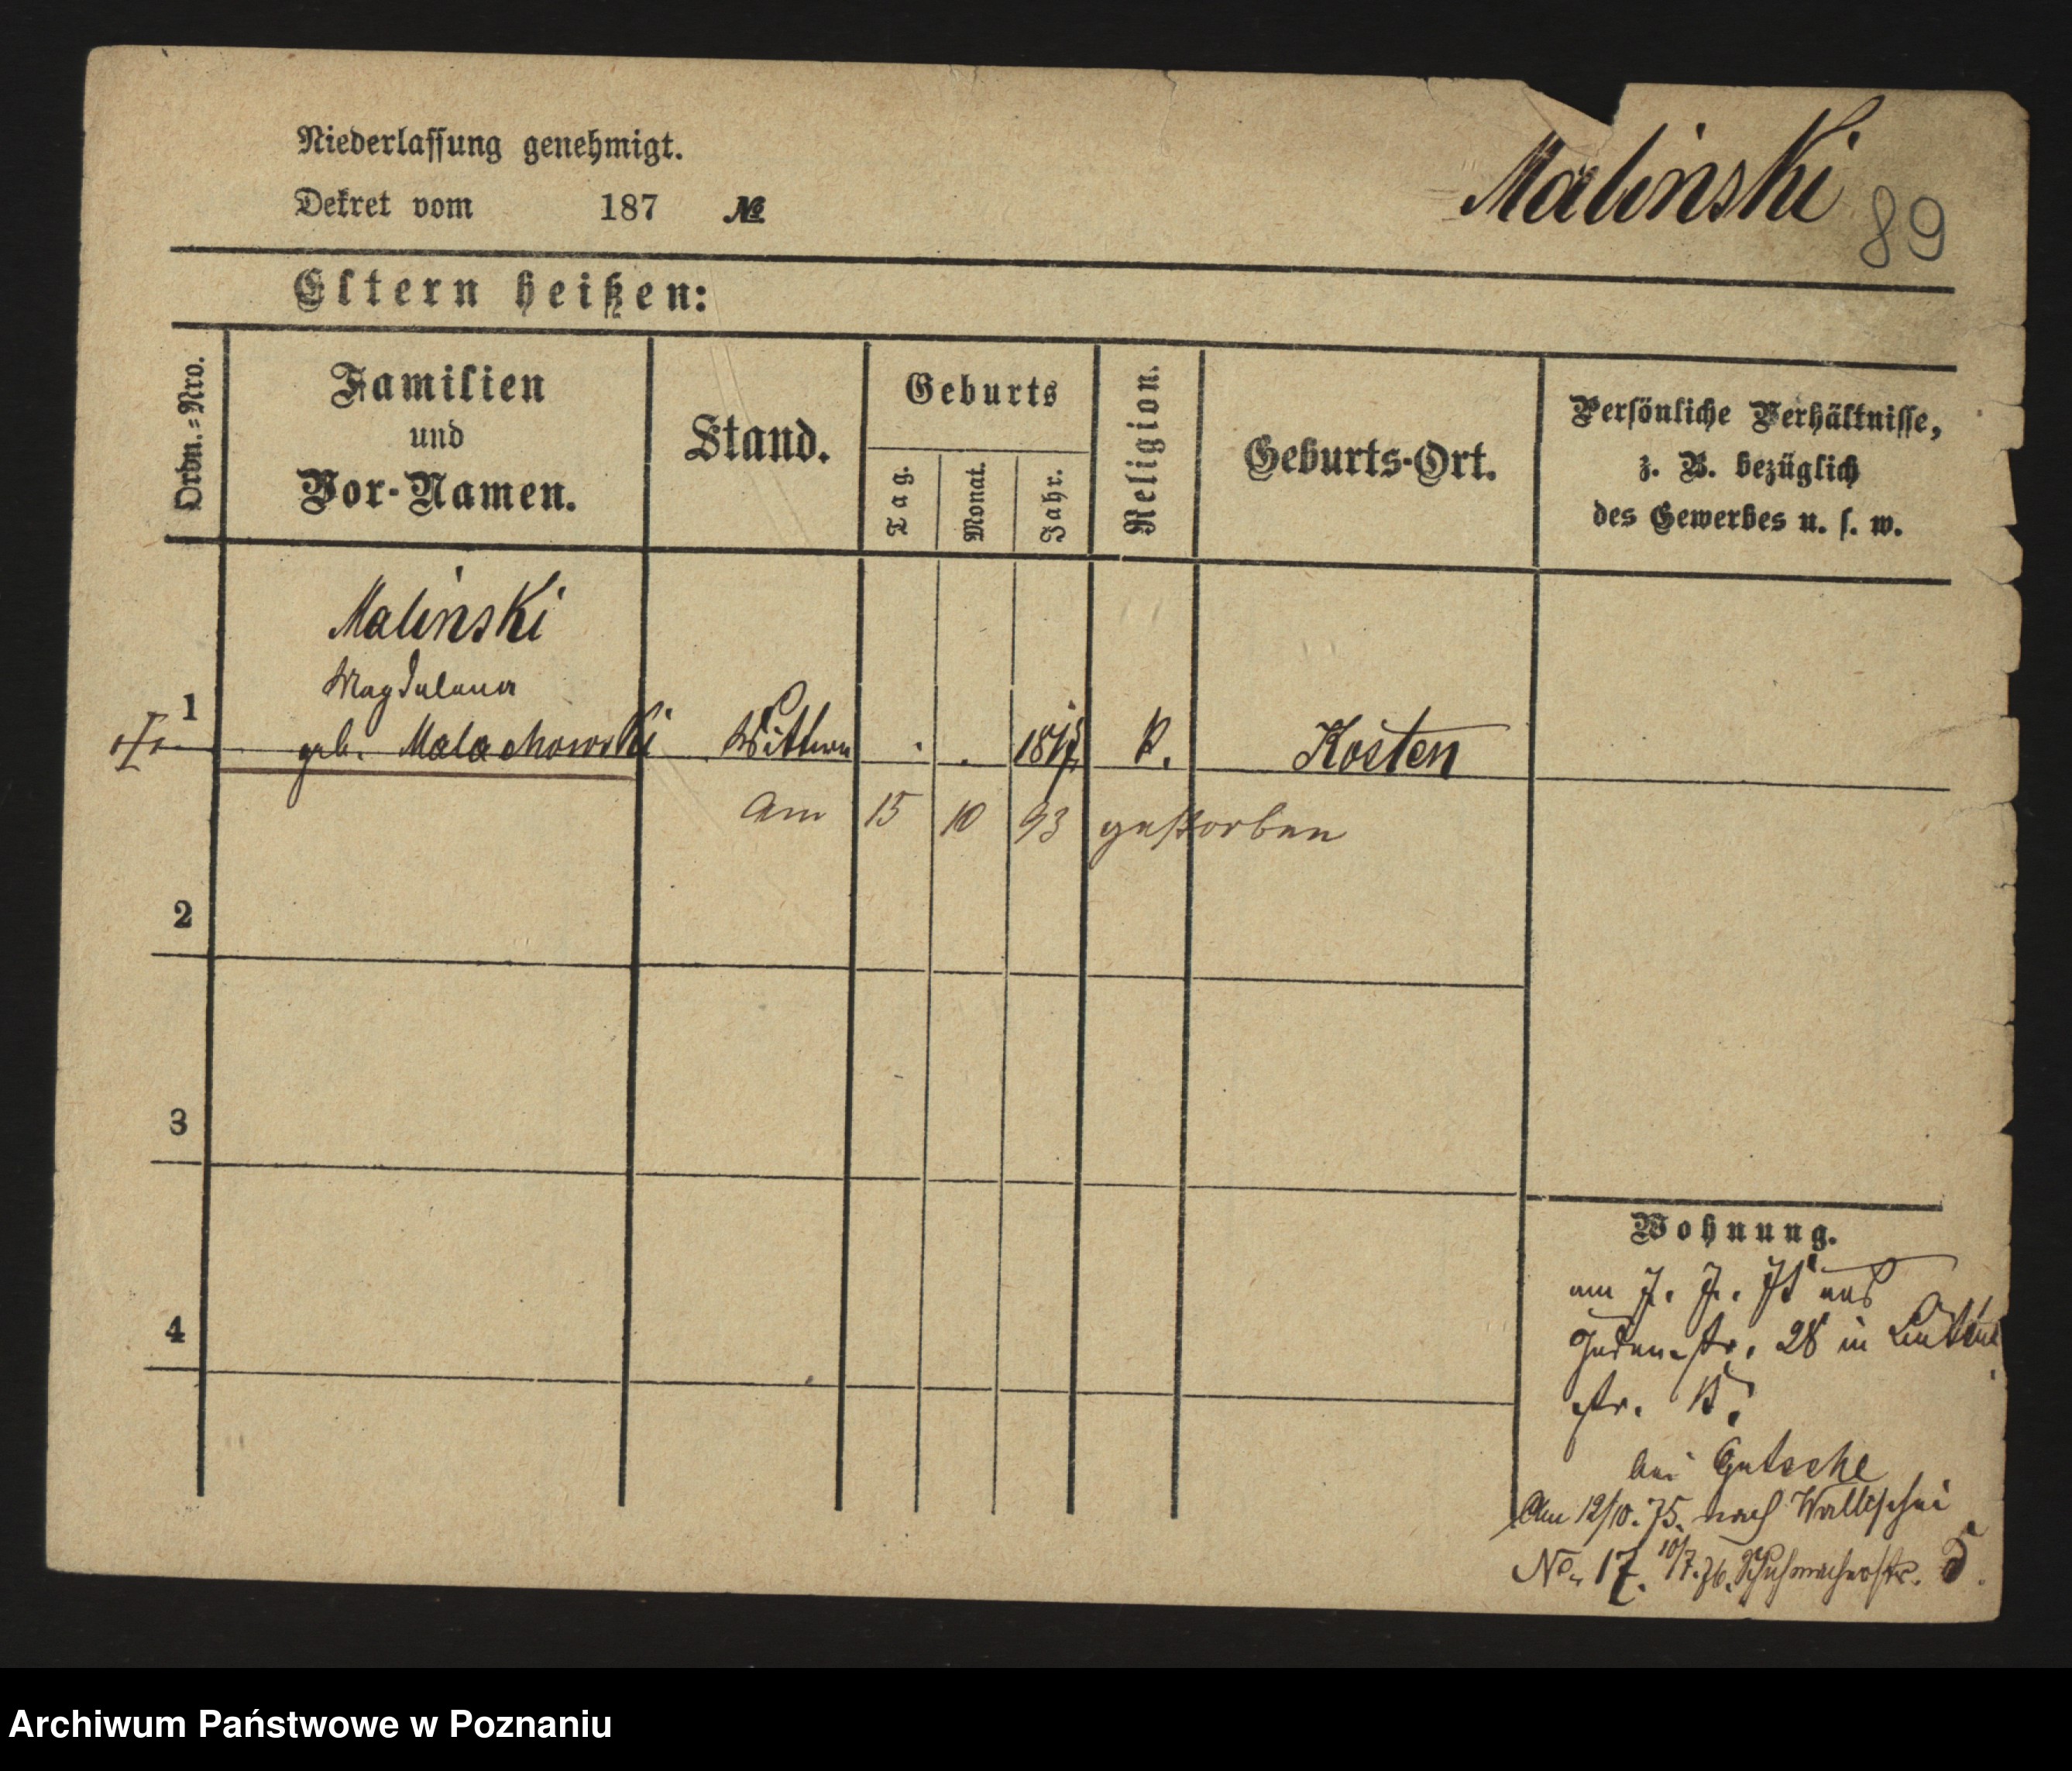 Niederlassung genehmigt.
Dekret vom 187 №
Malinski
89
Eltern heißen:
Ordn.-Nro.
Familien und Vor-Namen.
Stand.
Geburts
Tag.
Monat.
Jahr.
Religion.
Geburts-Ort.
Persönliche Verhältnisse,
z. B. bezüglich
des Gewerbes u. s. w.
Malinski
Magdalena
1 geb. Malachowski Wittwe . . K. Kosten
am 15 10 93 gestorben
2
3
4
Wohnung.
am
Judenstr. 28 in
str.
bei Gutsche
Am 12/10. 75. nach Wallischei
No. 17. 10/7. 76. Schuhmacherstr. 5.
Archiwum Państwowe w Poznaniu